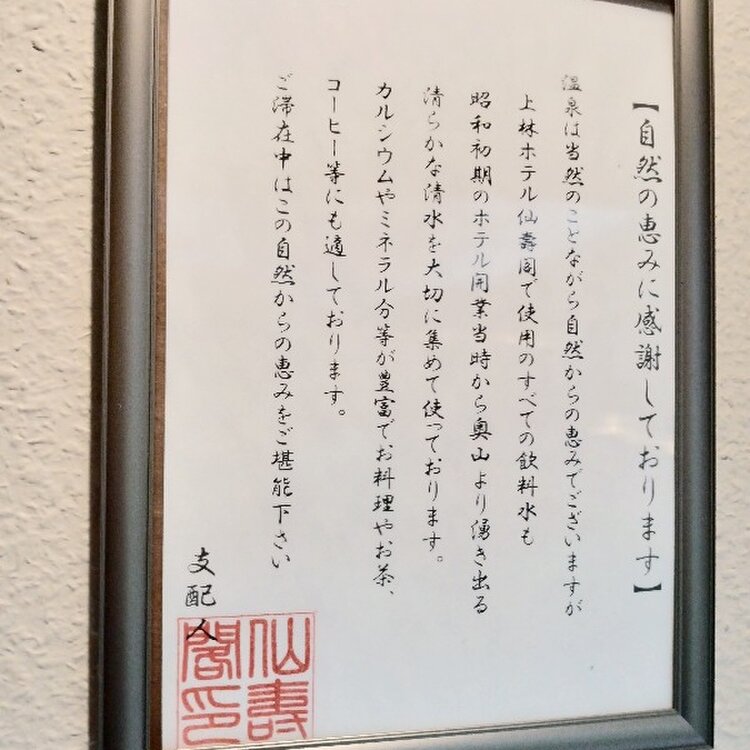 【自然の恵みに感謝しております】
温泉は当然のことながら自然からの恵みでございますが
上林ホテル仙壽閣で使用のすべての飲料水も
昭和初期のホテル開業当時から奥山より湧き出る
清らかな清水を大切に集めて使っております。
カルシウムやミネラル分等が豊富でお料理やお茶、
コーヒー等にも適しております。
ご滞在中はこの自然からの恵みをご堪能下さい
支配人
仙壽
閣印